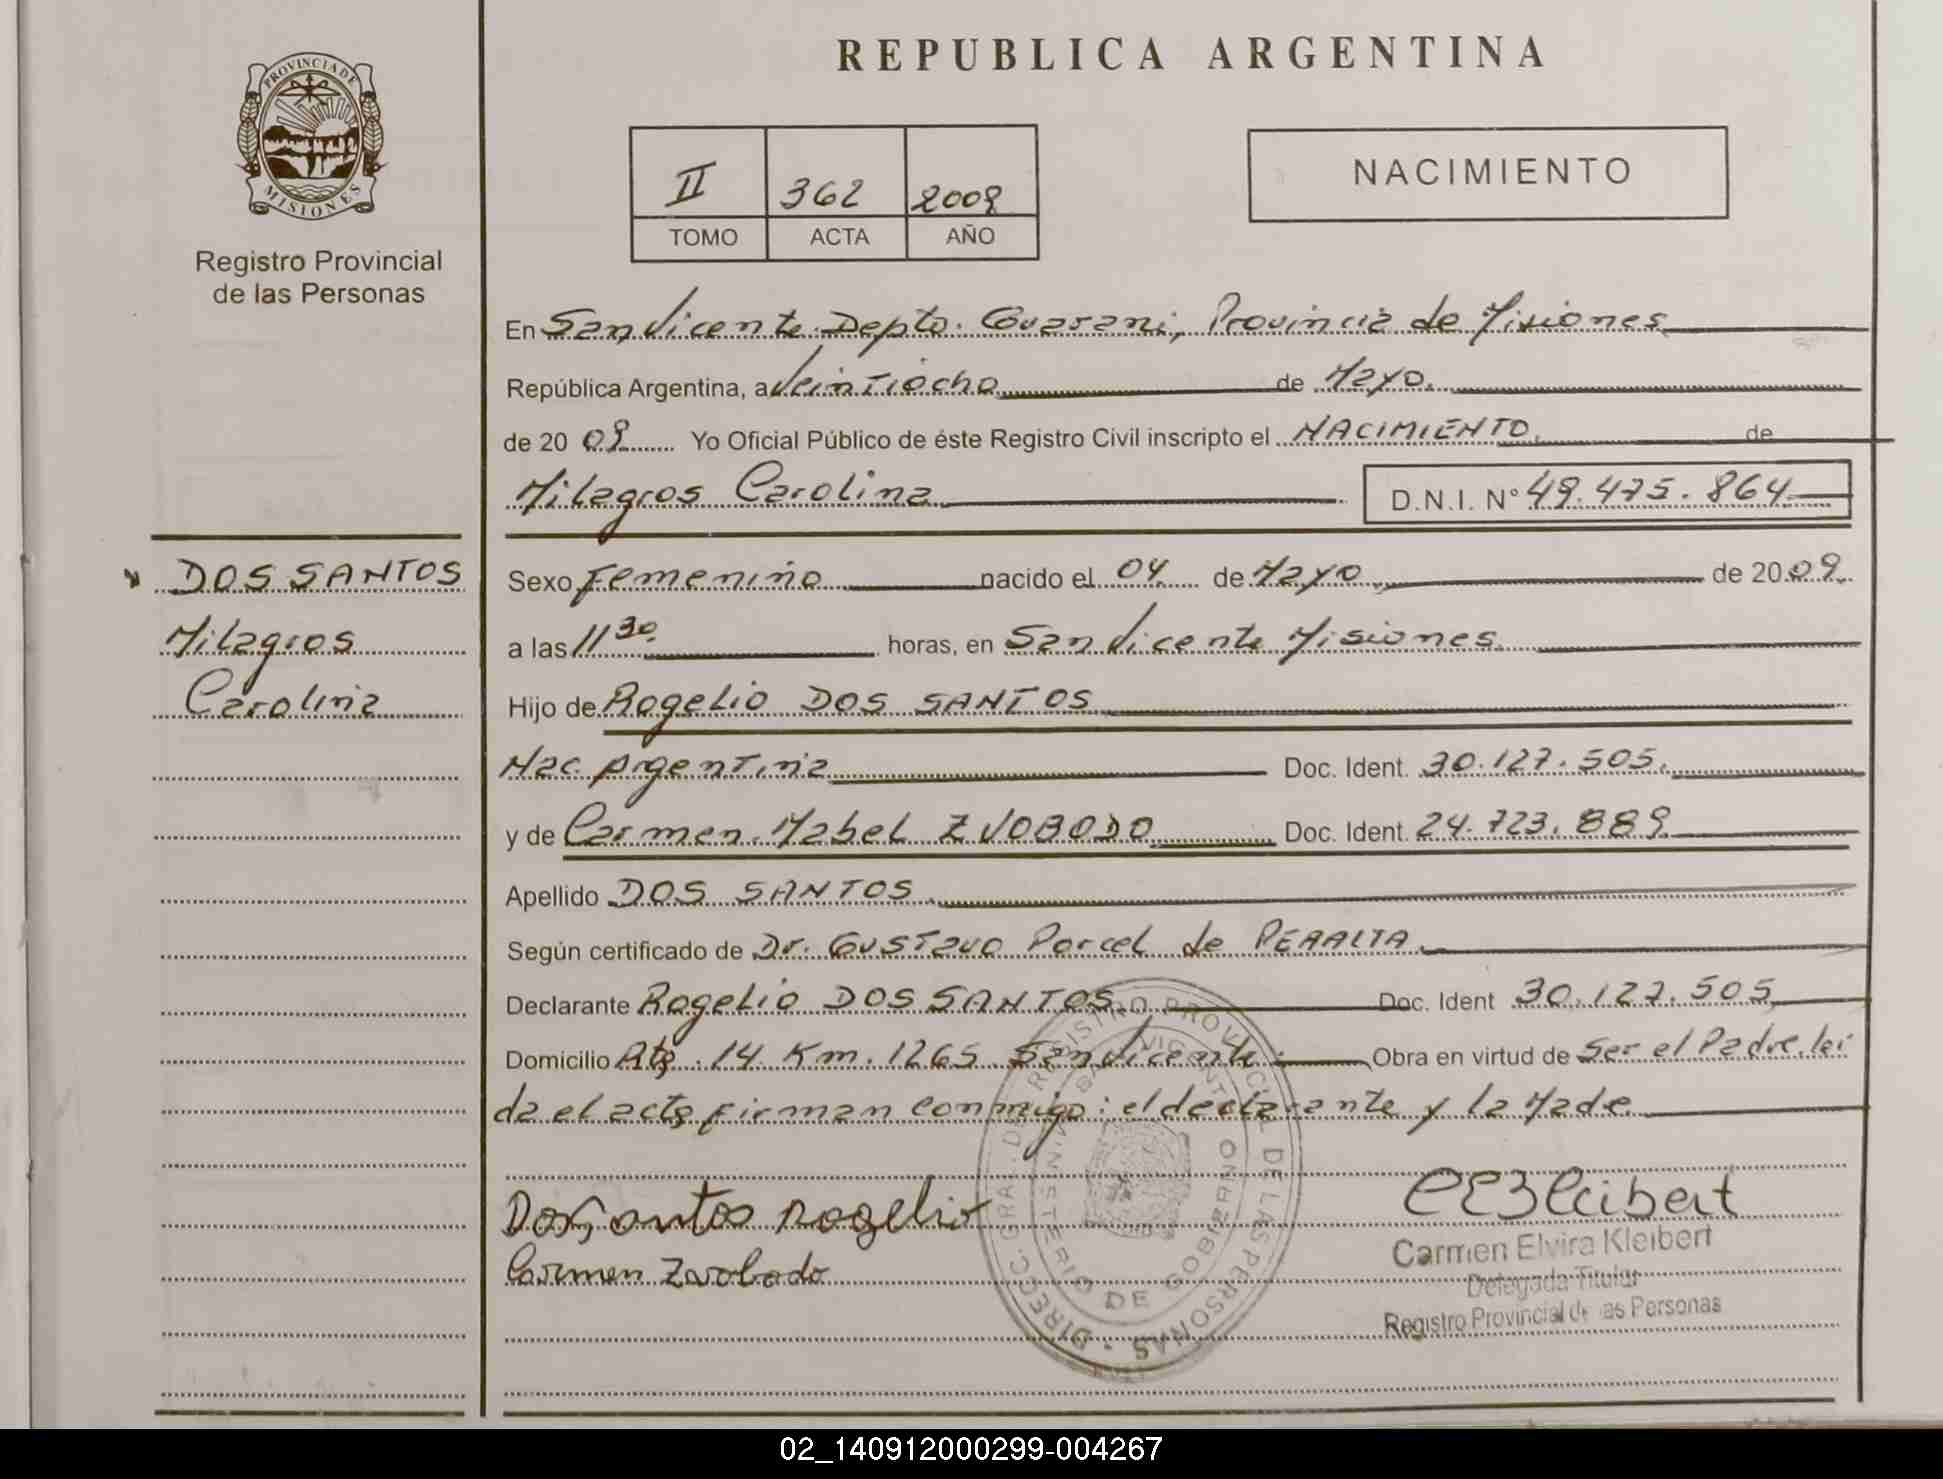 PROVINCIA DE
MISIONES
Registro Provincial
de las Personas
DOS SANTOS
Milagros
Carolina
REPUBLICA ARGENTINA
II 362 2009
TOMO ACTA AÑO
NACIMIENTO
En San Vicente Depto. Guarani, Provincia de Misiones
República Argentina, a Veintiocho de Mayo.
de 20 09 Yo Oficial Público de éste Registro Civil inscripto el NACIMIENTO. de
Milagros Carolina D.N.I. N° 49.475.864
Sexo Femenino nacido el 04 de Mayo de 20 09.
a las 11 30 horas, en San Vicente Misiones
Hijo de Rogelio DOS SANTOS
Nac. Argentina Doc. Ident. 30.127.505.
y de Carmen Mabel ZVOBODO Doc. Ident. 24.723.889
Apellido DOS SANTOS.
Según certificado de Dr. Gustavo Porcel de PERALTA.
Declarante Rogelio DOS SANTOS Doc. Ident 30.127.505
Domicilio Rta. 14 Km. 1265 San Vicente. Obra en virtud de Ser el Padre, lei
da el acta firman conmigo: el declarante y la Made
Dos Santos Rogelio
Carmen Zvobodo
DIRECC. GRAL. DE REGISTRO PROVINCIAL DE LAS PERSONAS
SAN VICENTE
MINISTERIO DE GOBIERNO
CEKleibert
Carmen Elvira Kleibert
Delegada Titular
Registro Provincial de las Personas
02_140912000299-004267